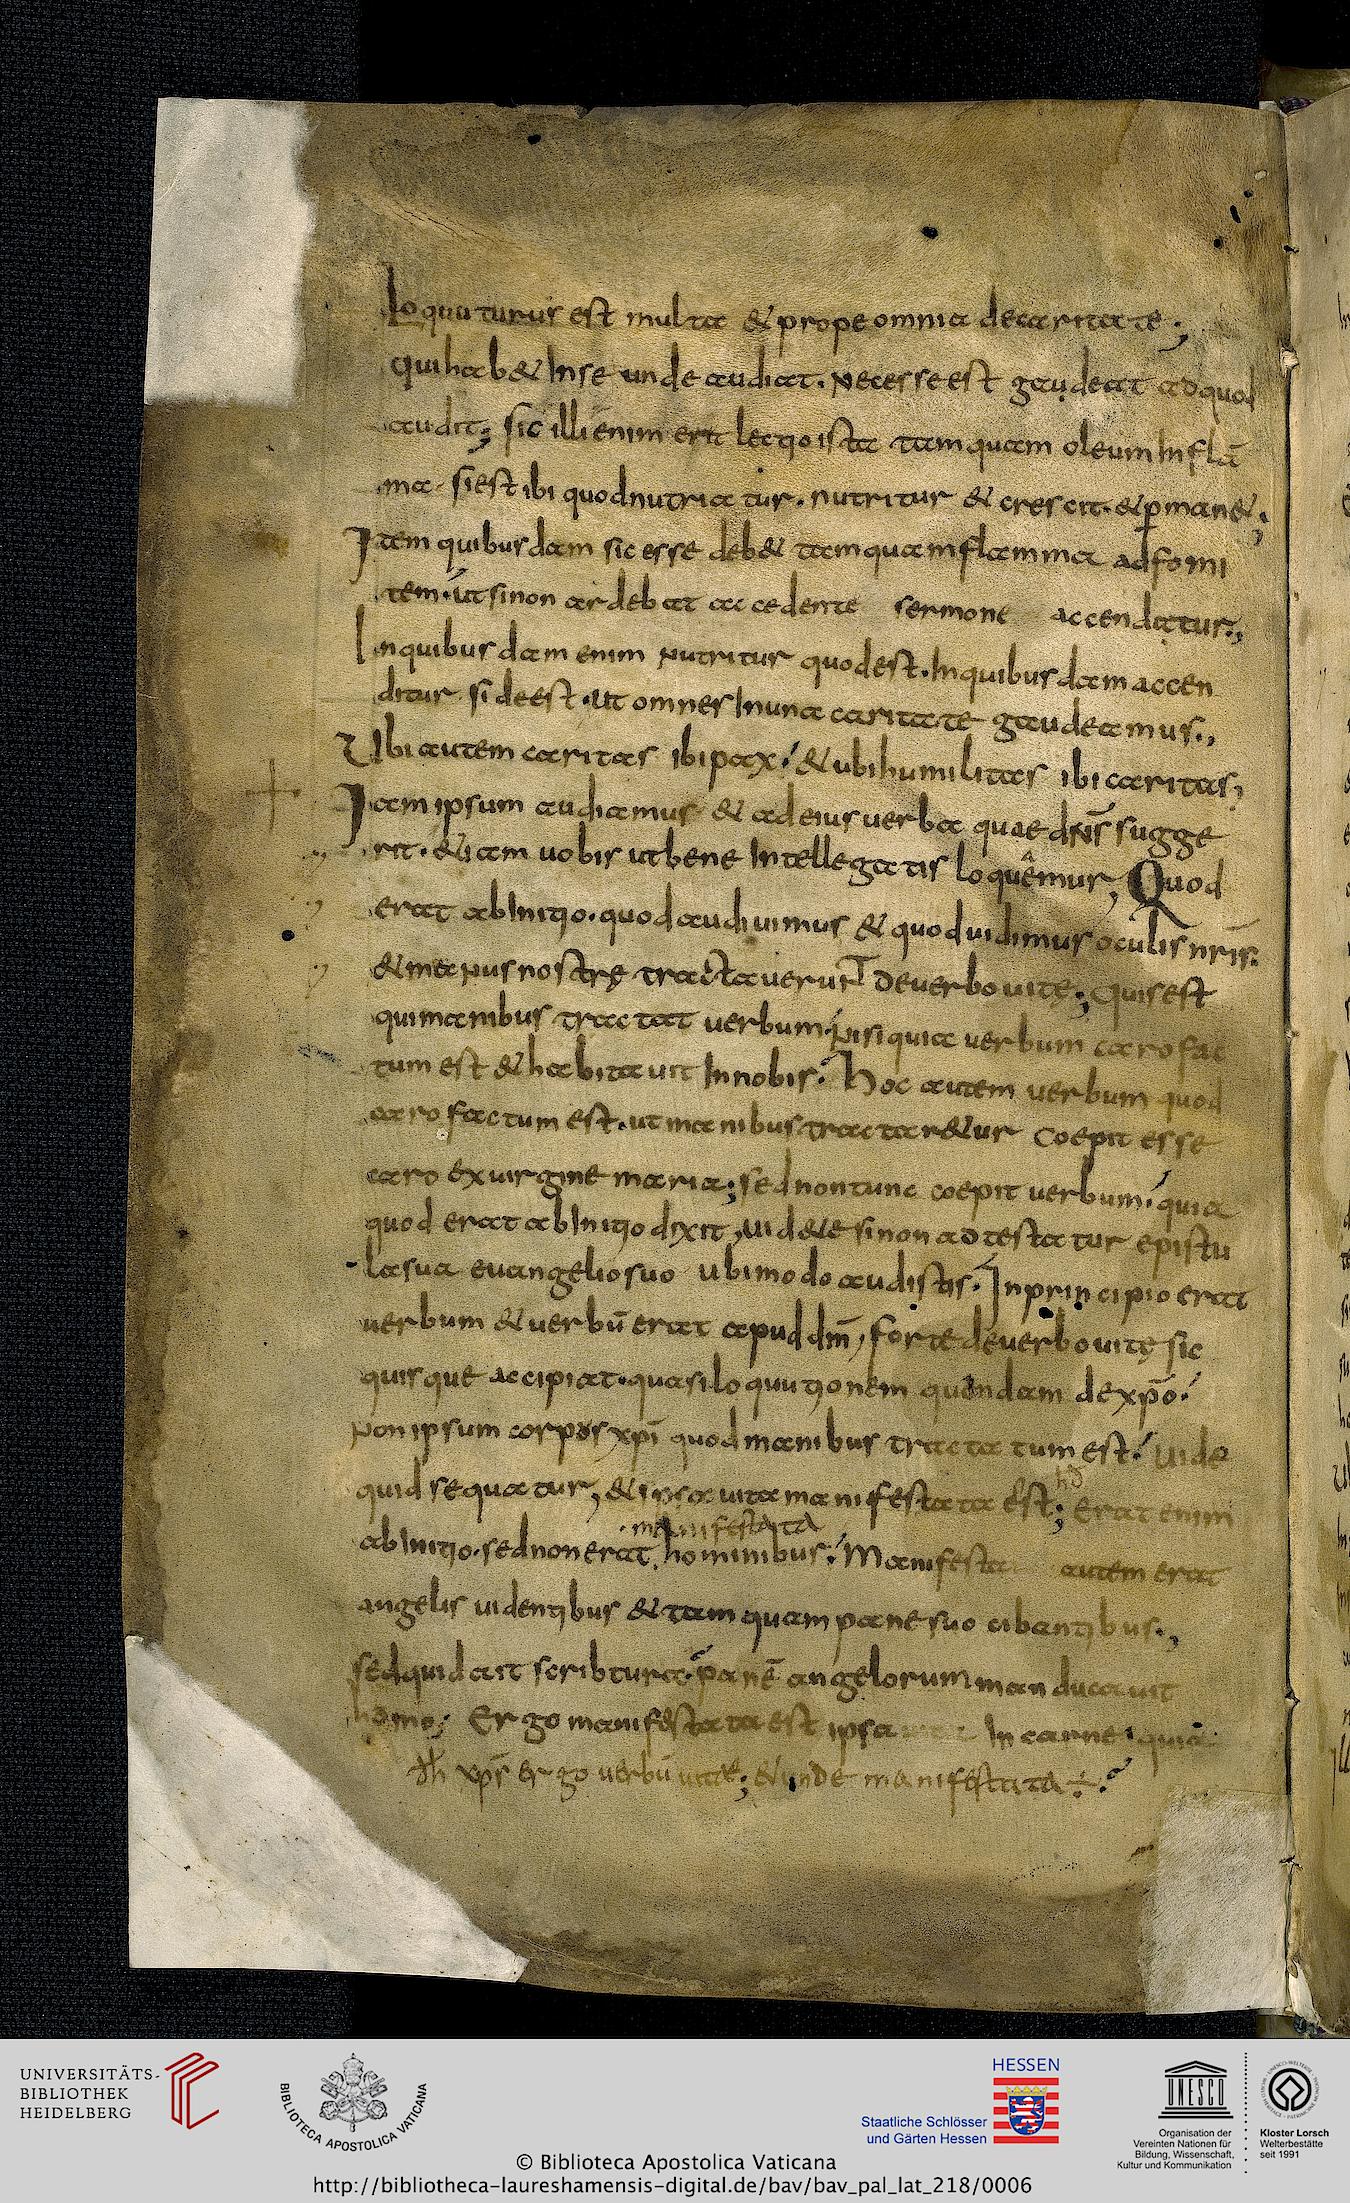 Loquuturus est multa & prope omnia decaritate;
qui hab& Inse unde audiat. Necesse est gaudeat adquod
audit; sic illi enim erit lectio ista tamquam oleum Inflā
ma. si est ibi quod nutriatur. nutritur & crescit. & p̄man&;
Item quibusdam sic esse deb& tamquam flamma adfomi
tem. ut si non ardebat accedente sermone accendatur.,
Inquibusdam enim nutritur quod est. Inquibusdam accen
ditur si deest. ut omnes Inuna caritate gaudeamus.,
Ubi autem caritas ibi pax. & ubi humilitas ibi caritas,
Iam ipsum audiamus & ad eius uerba quae dn̄s sugge
rit. & iam uobis ut bene Intellegatis loquêmur, Quod
erat ab Initio. quod audiuimus & quod uidimus oculis nr̄is.
& manus nostrę tractauerunt deuerbo uitę; Quis est
qui manibus tractat uerbum. nisi quia uerbum caro fac
tum est & habitauit Innobis. Hoc autem uerbum quod
caro factum est. ut manibus tractar&ur coepit esse
caro exuirgine maria; sed non tunc coepit uerbum. quia
quod erat ab Initio dixit, uid&e si non adtestatur epistu
la sua euangelio suo ubi modo audistis. In principio erat
uerbum & uerbū erat apud dm̄, forte de uerbo uitę sic
quisque accipiat. quasi loquutionem quandam de xp̄o.
Non ipsum corpus xp̄i quod manibus tractatum est. uide
quid sequatur, & ipsa uita manifestata est; Erat enim
manifestata
ab Initio. sed non erat hominibus. Manifesta autem erat
angelis uidentibus & tamquam pane suo cibantibus.,
sed quid ait scribtura. panē angelorum manducauit
homo; Ergo manifestata est ipsa uita In carne. quia
xp̄s ergo uerbū uitae; & unde manifestata ÷.
UNIVERSITÄTS-
BIBLIOTHEK
HEIDELBERG
BIBLIOTECA APOSTOLICA VATICANA
HESSEN
Staatliche Schlösser
und Gärten Hessen
UNESCO
Organisation der
Vereinten Nationen für
Bildung, Wissenschaft,
Kultur und Kommunikation
Kloster Lorsch
Welterbestätte
seit 1991
© Biblioteca Apostolica Vaticana
http://bibliotheca-laureshamensis-digital.de/bav/bav_pal_lat_218/0006